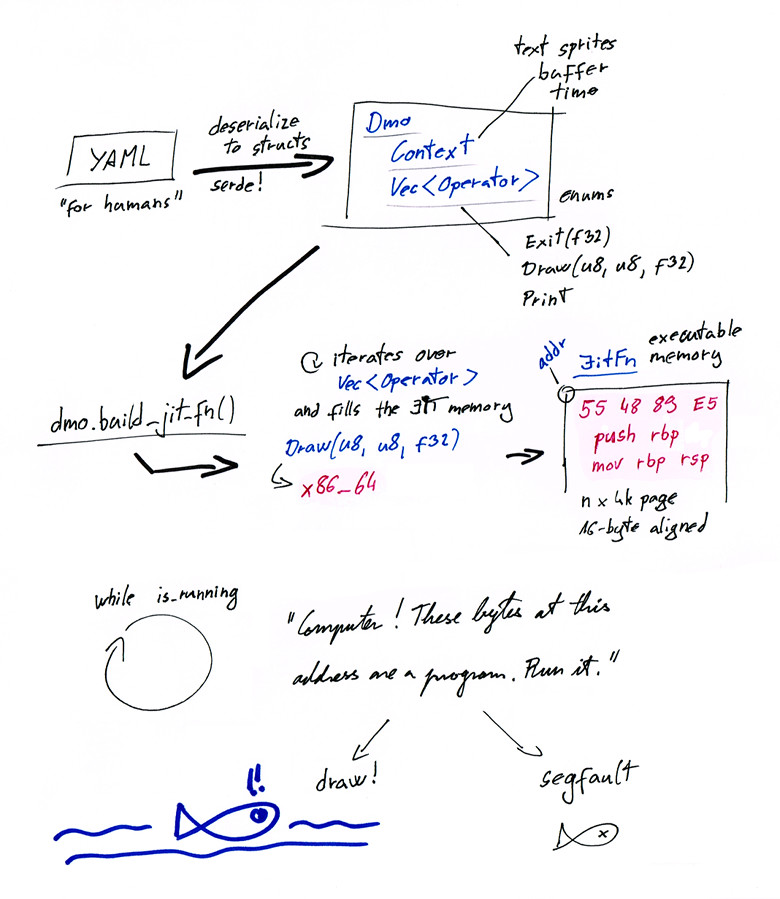 text sprites
buffer
time
deserialize
to structs
serde!
YAML
"for humans"
Dmo
Context
Vec<Operator>
enums
Exit(f32)
Draw(u8, u8, f32)
Print
dmo.build_jit_fn()
iterates over
Vec<Operator>
and fills the JIT memory
Draw(u8, u8, f32)
x86_64
addr
JitFn
executable
memory
55 48 89 E5
push rbp
mov rbp rsp
n x 4k page
16-byte aligned
while is_running
"Computer! These bytes at this
address are a program. Run it."
draw!
segfault
!!